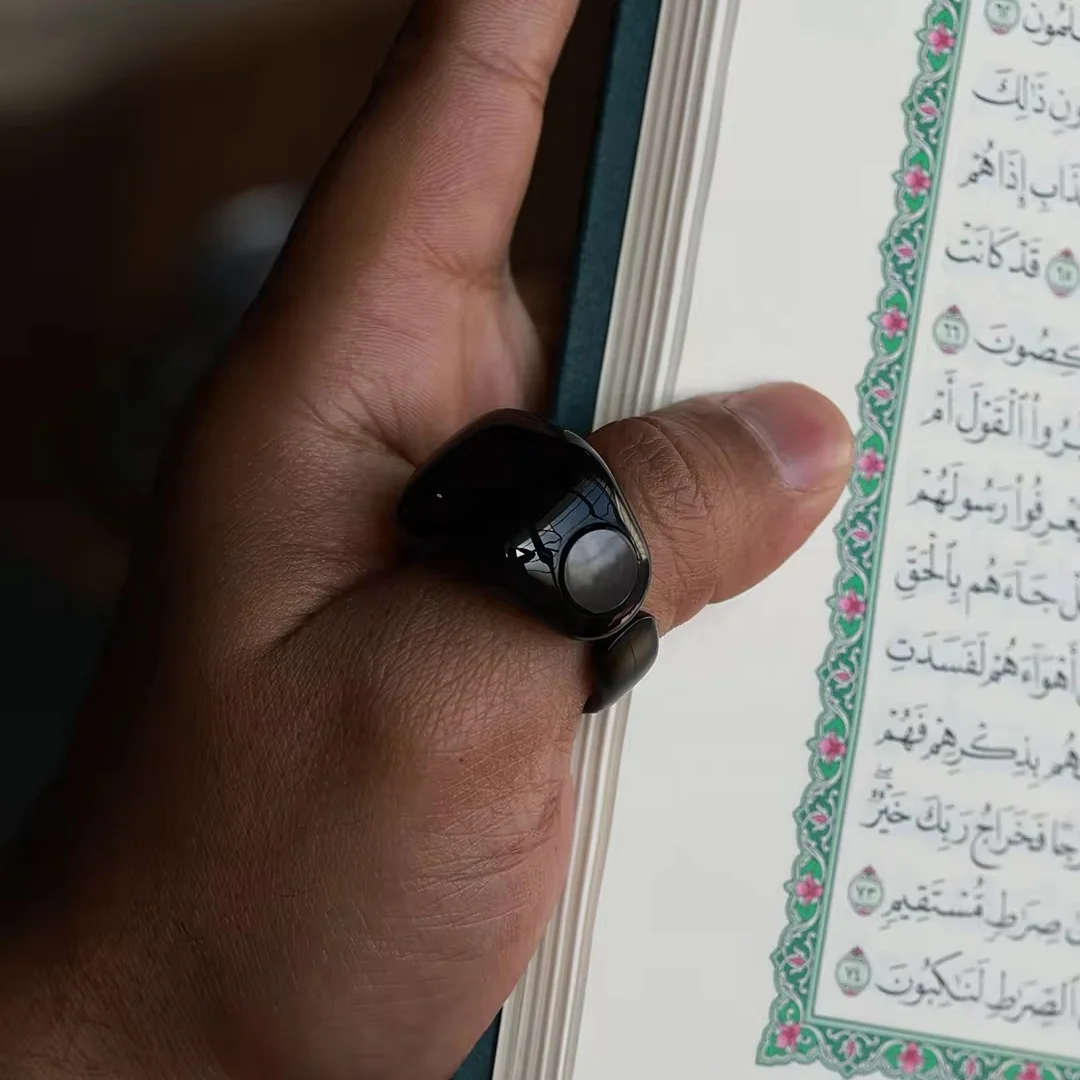 ـلَمُونَ ٦٢
ـونِ ذَٰلِكَ
ـذَابِ إِذَا هُمْ
٦٥ قَدْ كَانَتْ
ـكِصُونَ ٦٦
ـبَّرُوا۟ ٱلْقَوْلَ أَمْ
يَعْرِفُوا۟ رَسُولَهُمْ
ـلْ جَآءَهُم بِٱلْحَقِّ
أَهْوَآءَهُمْ لَفَسَدَتِ
ـهُم بِذِكْرِهِمْ فَهُمْ
ـرْجًا فَخَرَاجُ رَبِّكَ خَيْرٌ
صِرَٰطٍ مُّسْتَقِيمٍ ٧٣
ٱلصِّرَٰطِ لَنَـٰكِبُونَ ٧٤